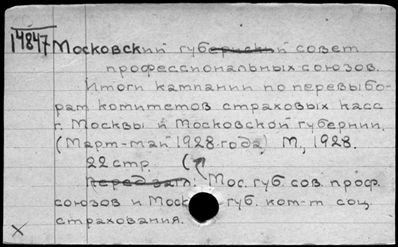 14847
Московский губернский совет
профессиональных союзов.
Итоги кампании по перевыбо-
рам комитетов страховых касс
г. Москвы и Московской губернии.
(Март-май 1928 года) М., 1928.
22 стр. (
Перед загл.: Мос. губ. сов. проф.
союзов и Моск губ. ком-т соц.
страхования.
X